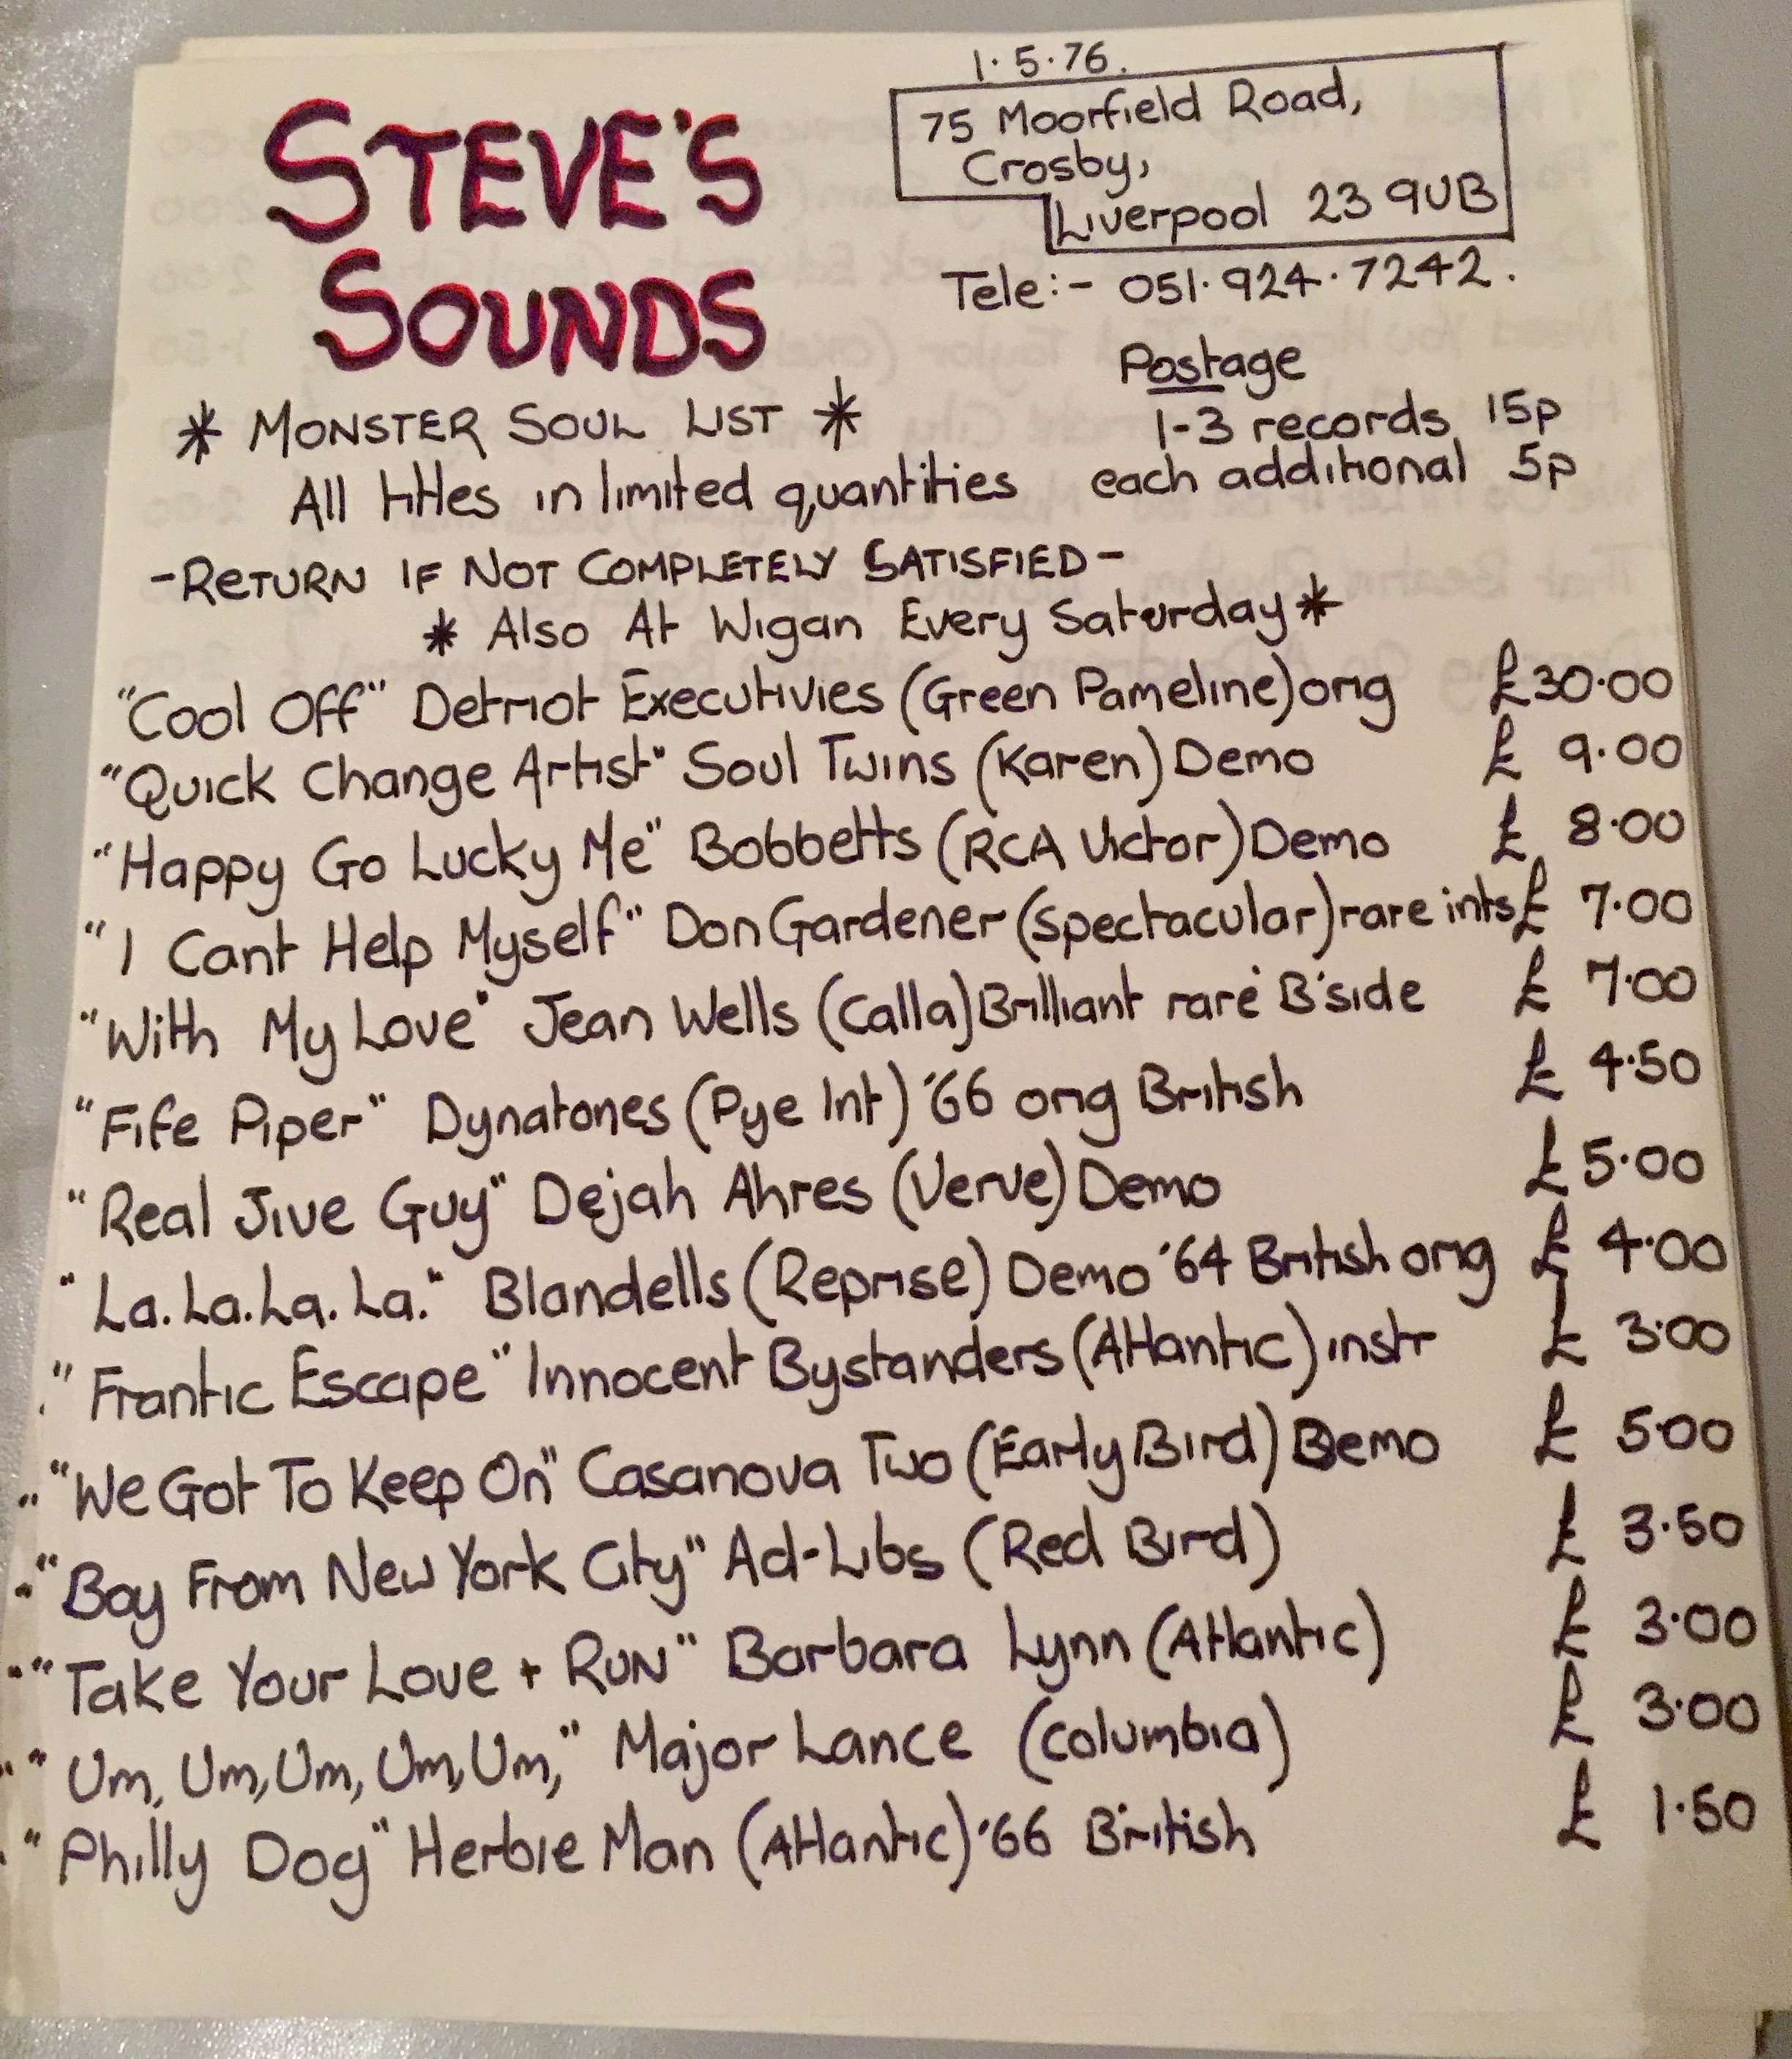 1.5.76.
STEVE'S
SOUNDS
75 Moorfield Road,
Crosby,
Liverpool 23 9UB
Tele:- 051.924.7242.
Postage
1-3 records 15p
each additional 5p
* MONSTER SOUL LIST *
All titles in limited quantities
-RETURN IF NOT COMPLETELY SATISFIED-
* Also At Wigan Every Saturday *
"Cool Off" Detriot Executivies (Green Pameline) orig £30.00
"Quick Change Artist" Soul Twins (Karen) Demo £ 9.00
"Happy Go Lucky Me" Bobbetts (RCA Victor) Demo £ 8.00
"I Cant Help Myself" Don Gardener (Spectacular) rare ints £ 7.00
"With My Love" Jean Wells (Calla) Brilliant rare 'B'side £ 7.00
"Fife Piper" Dynatones (Pye Int) '66 orig British £ 4.50
"Real Jive Guy" Dejah Ahres (Verve) Demo £5.00
"La. La. La. La." Blandells (Reprise) Demo '64 British orig £ 4.00
"Frantic Escape" Innocent Bystanders (Atlantic) instr £ 3.00
"We Got To Keep On" Casanova Two (Early Bird) Demo £ 5.00
"Boy From New York City" Ad-Libs (Red Bird) £ 3.50
"Take Your Love + RUN" Barbara Lynn (Atlantic) £ 3.00
"Um, Um, Um, Um, Um," Major Lance (Columbia) £ 3.00
"Philly Dog" Herbie Man (Atlantic) '66 British £ 1.50